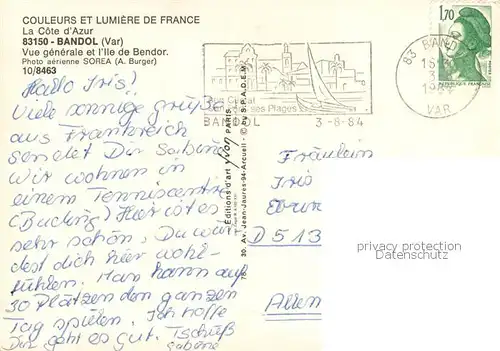 COULEURS ET LUMIÈRE DE FRANCE
La Côte d'Azur
83150 - BANDOL (Var)
Vue générale et l'Ile de Bendor.
Photo aérienne SOREA (A. Burger)
10/8463
Hallo Iris!
Viele sonnige grüße
aus Frankreich
sendet Dir Sabine
Wir wohnen in
einem Tenniscentre
Hier ist es
sehr schön. Du wür
dest dich hier wohl-
fühlen. Man kann auf
30 Plätzen den ganzen
Tag spielen. Ich hoffe
Dir geht es gut. Tschüß
Sabine
Editions d'art yvon PARIS
30, Av. Jean-Jaurès-94-Arcueil - © by S.P.A.D.E.M.
des Plages
BANDOL 3-8-84
1,70
83 BANDOL
VAR
Fräulein
Iris
D 513
privacy protection
Datenschutz